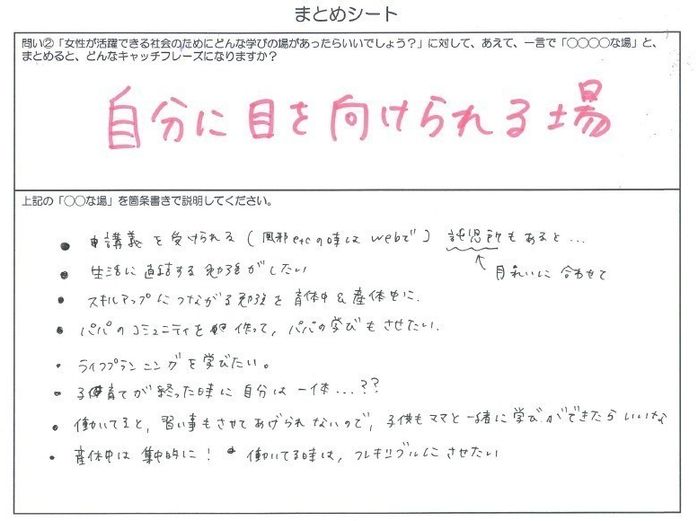 まとめシート
問い②「女性が活躍できる社会のためにどんな学びの場があったらいいでしょう？」に対して、あえて、一言で「〇〇〇〇な場」と、
まとめると、どんなキャッチフレーズになりますか？
自分に目を向けられる場
上記の「〇〇な場」を箇条書きで説明してください。
● 講義を受けられる（風邪etcの時はwebで） 託児所もあると…
● 生活に直結する勉強がしたい
↑月れいに合わせて
● スキルアップにつながる勉強を育休中&産休中に.
● パパのコミュニティを作って, パパの学びもさせたい.
・ ライフプランニングを学びたい。
● 子供育てが終った時に自分は一体…??
● 働いてると, 習い事もさせてあげられないので, 子供もママと一緒に学びができたらいいな
● 産休中は集中的に! ● 働いてる時は, フレキシブルにさせたい